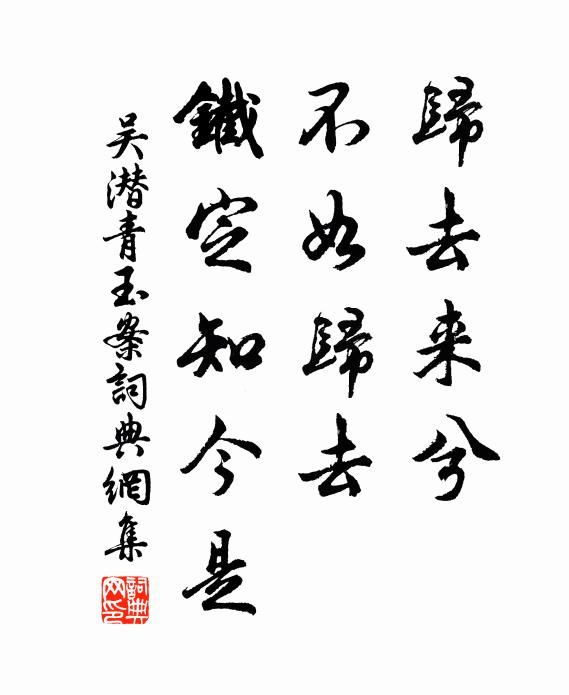 歸去来兮
不如歸去
鐵定知今是
吴潜青玉案詞典網集
詞典网印